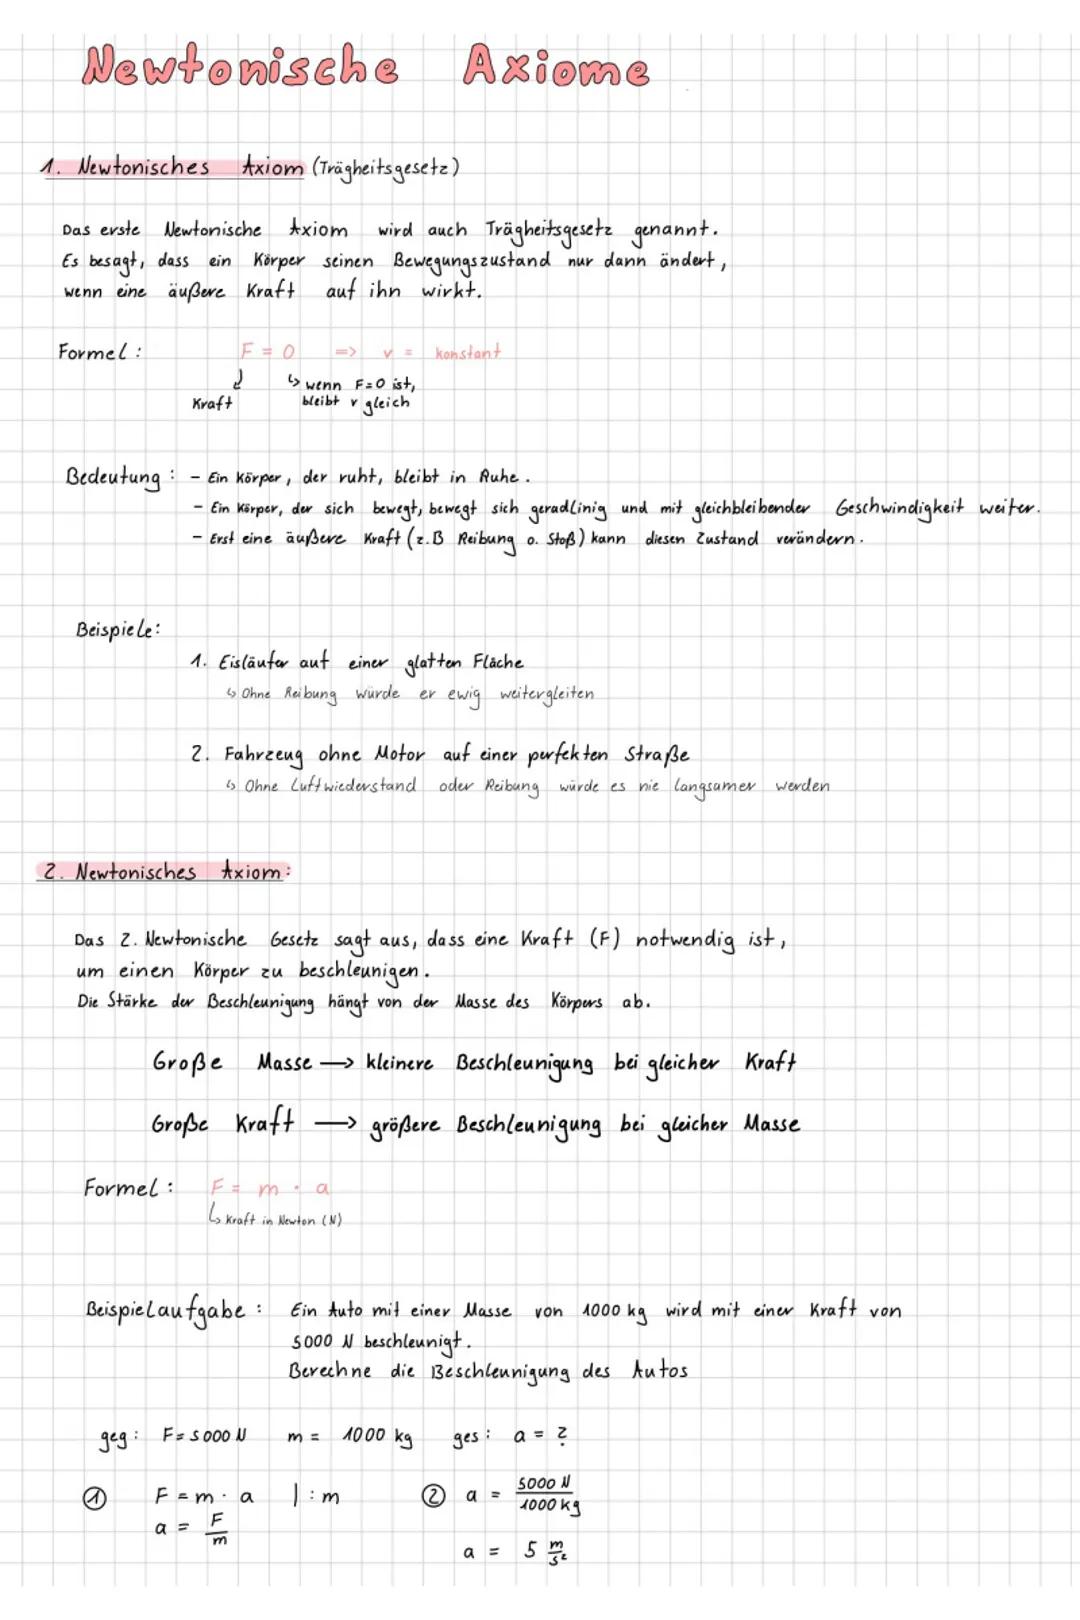 Newtonische Axiome
1. Newtonisches Axiom (Trägheitsgesetz)
Das erste Newtonische Axiom wird auch Trägheitsgesetz genannt.
Es besagt, dass ein Körper seinen Bewegungszustand nur dann ändert,
wenn eine äußere Kraft auf ihn wirkt.
Formel: F = 0 => v = konstant
↳ wenn F=0 ist,
Kraft bleibt v gleich
Bedeutung: - Ein Körper, der ruht, bleibt in Ruhe.
- Ein Körper, der sich bewegt, bewegt sich geradlinig und mit gleichbleibender Geschwindigkeit weiter.
- Erst eine äußere Kraft (z.B Reibung o. Stoß) kann diesen Zustand verändern.
Beispiele:
1. Eisläufer auf einer glatten Fläche
↳ Ohne Reibung würde er ewig weitergleiten
2. Fahrzeug ohne Motor auf einer perfekten Straße
↳ Ohne Luftwiederstand oder Reibung würde es nie langsamer werden
2. Newtonisches Axiom:
Das 2. Newtonische Gesetz sagt aus, dass eine Kraft (F) notwendig ist,
um einen Körper zu beschleunigen.
Die Stärke der Beschleunigung hängt von der Masse des Körpers ab.
Große Masse → kleinere Beschleunigung bei gleicher Kraft
Große Kraft → größere Beschleunigung bei gleicher Masse
Formel: F = m · a
↳ Kraft in Newton (N)
Beispielaufgabe: Ein Auto mit einer Masse von 1000 kg wird mit einer Kraft von
5000 N beschleunigt.
Berechne die Beschleunigung des Autos
geg: F = 5000 N m = 1000 kg ges: a = ?
① F = m · a | : m ② a = 5000 N / 1000 kg
a = F / m
a = 5 m/s²